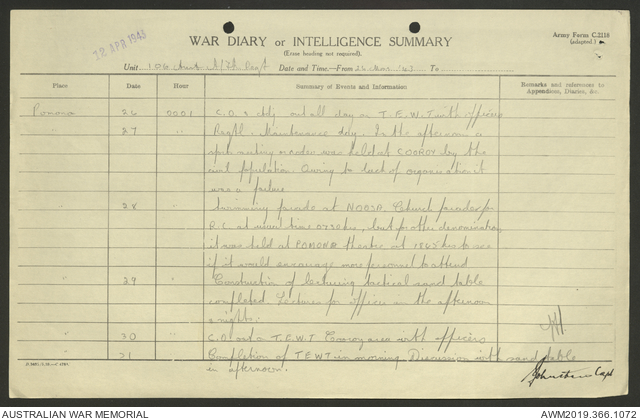 12 APR 1943
WAR DIARY or INTELLIGENCE SUMMARY
(Erase heading not required).
Army Form C.2118
(adapted.)
Unit 106 Aust A/Tk Regt Date and Time—From 26 Mar '43 To
Place Date Hour Summary of Events and Information Remarks and references to
Appendices, Diaries, &c.
Pomona 26 0001 C.O. & Adj out all day on T.E.W.T with officers
" 27 Regtl. Maintenance day. In the afternoon a
sports meeting was held at COOROY by the
civil population. Owing to lack of organisation it
was a failure
" 28 Swimming parade at NOOSA. Church parades for
R.C. at usual time 0730 hrs, but for other denominations
it was held at POMONA theatre at 1845 hrs to see
if it would encourage more personnel to attend
" 29 Construction of lecturing tactical sand table
completed. Lectures for officers in the afternoon
& night.
" 30 C.O. out on T.E.W.T Cooroy area with officers
" 31 Completion of TEWT in morning. Discussion with sand table
in afternoon.
Capt
AUSTRALIAN WAR MEMORIAL
AWM2019.366.1072